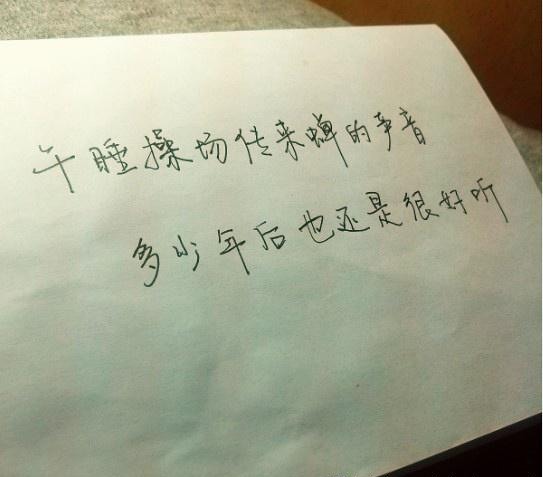 午睡操场传来蝉的声音
多少年后也还是很好听